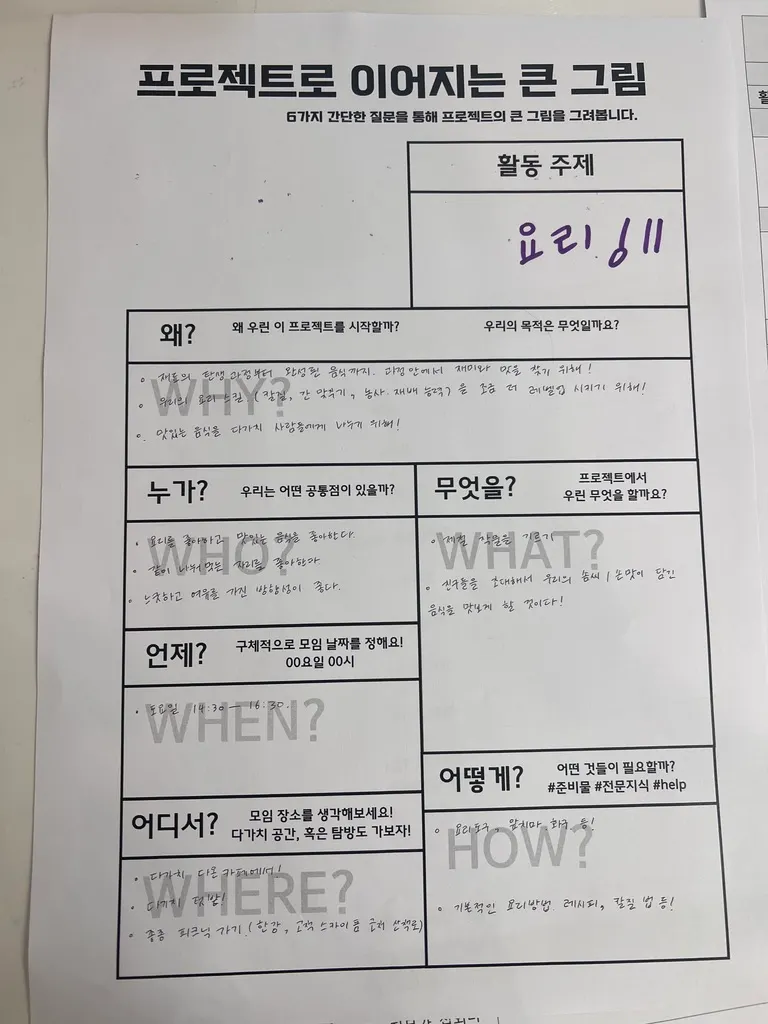 프로젝트로 이어지는 큰 그림
6가지 간단한 질문을 통해 프로젝트의 큰 그림을 그려봅니다.
활동 주제
요리
왜?
왜 우린 이 프로젝트를 시작할까?
우리의 목적은 무엇일까요?
WHY?
재료의 탄생 과정부터 완성된 음식까지. 과정 안에서 재미와 맛을 찾기 위해!
우리의 요리 스킬 (칼질, 간 맞추기, 농사. 재배 능력)을 조금 더 레벨업 시키기 위해!
맛있는 음식을 다가치 사람들에게 나누기 위해!
누가?
우리는 어떤 공통점이 있을까?
WHO?
요리를 좋아하고 맛있는 음식을 좋아한다.
같이 나눠먹는 자리를 좋아한다
느긋하고 여유를 가진 방향성이 좋다.
무엇을?
프로젝트에서
우린 무엇을 할까요?
WHAT?
제철 작물을 기르기
친구들을 초대해서 우리의 솜씨 / 손맛이 담긴
음식을 맛보게 할 것이다!
언제?
구체적으로 모임 날짜를 정해요!
00요일 00시
WHEN?
토요일 14:30 - 16:30.
어떻게?
어떤 것들이 필요할까?
#준비물 #전문지식 #help
HOW?
요리도구, 앞치마, 화구 등!
기본적인 요리방법. 레시피, 칼질 법 등!
어디서?
모임 장소를 생각해보세요!
다가치 공간, 혹은 탐방도 가보자!
WHERE?
다가치 다온 카페에서!
다가치 텃밭!
종종 피크닉 가기 (한강, 고객 스카이 폼 근처 산책로)